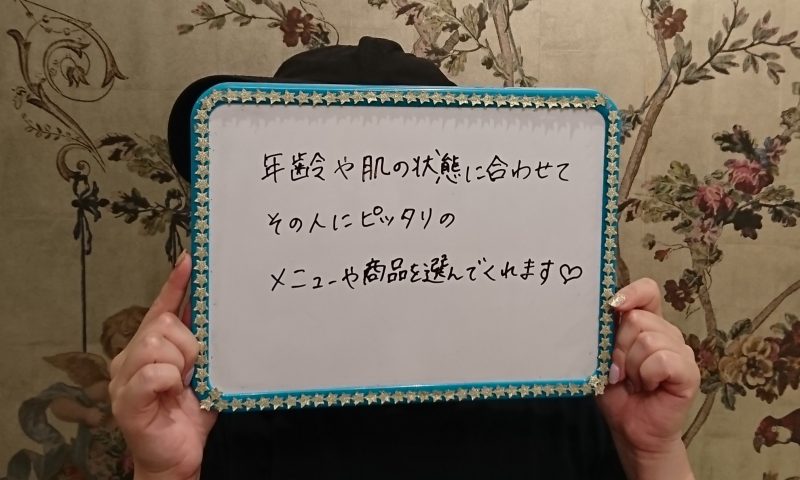 年齢や肌の状態に合わせて
その人にピッタリの
メニューや商品を選んでくれます♡